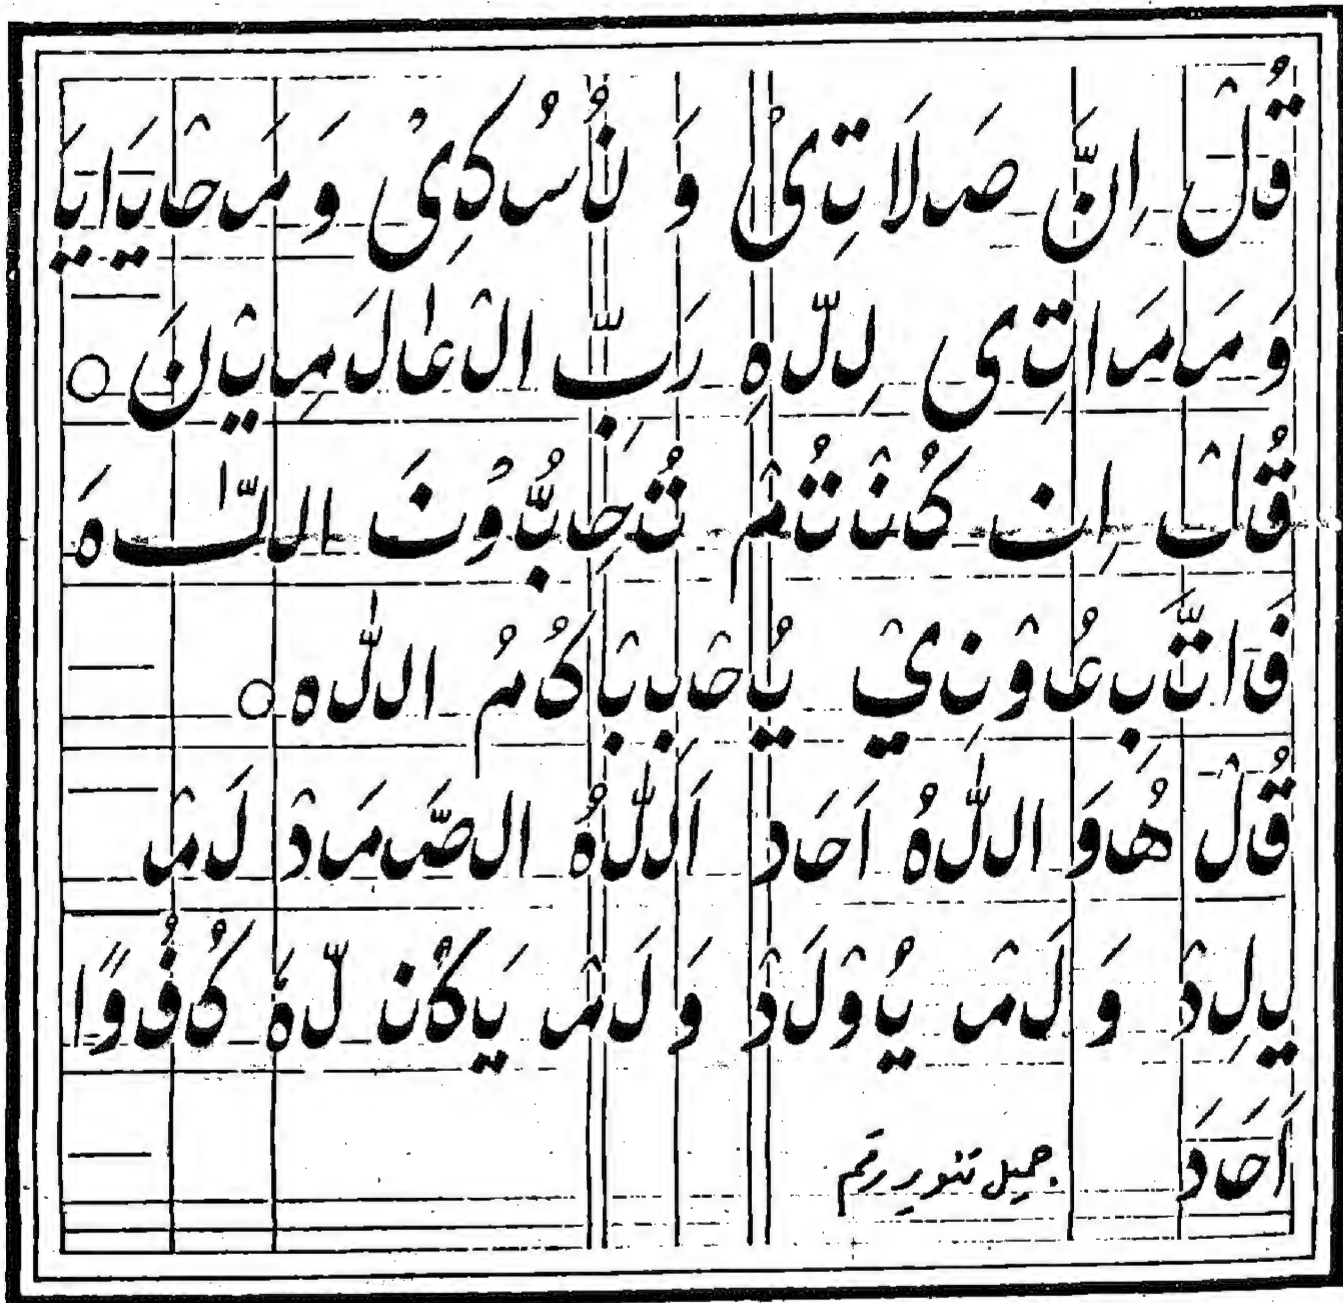 قُلْ اِنَّ صَلَاتِیْ وَ نُسُکِیْ وَ مَحْیَایَ
وَ مَمَاتِی لِلّٰہِ رَبِّ الْعٰالَمِیْنَ ○
قُلْ اِن کُنْتُمْ تُحِبُّوْنَ اللّٰہَ
فَاتَّبِعُوْنِيْ یُحْبِبْکُمُ اللّٰہ ○
قُلْ ھُوَ اللّٰہُ اَحَد اَللّٰہُ الصَّمَدْ لَمْ
یَلِدْ وَ لَمْ یُوْلَدْ وَ لَمْ یَکُن لَّہٗ کُفُوًا
اَحَد جمیل تنویر رقم